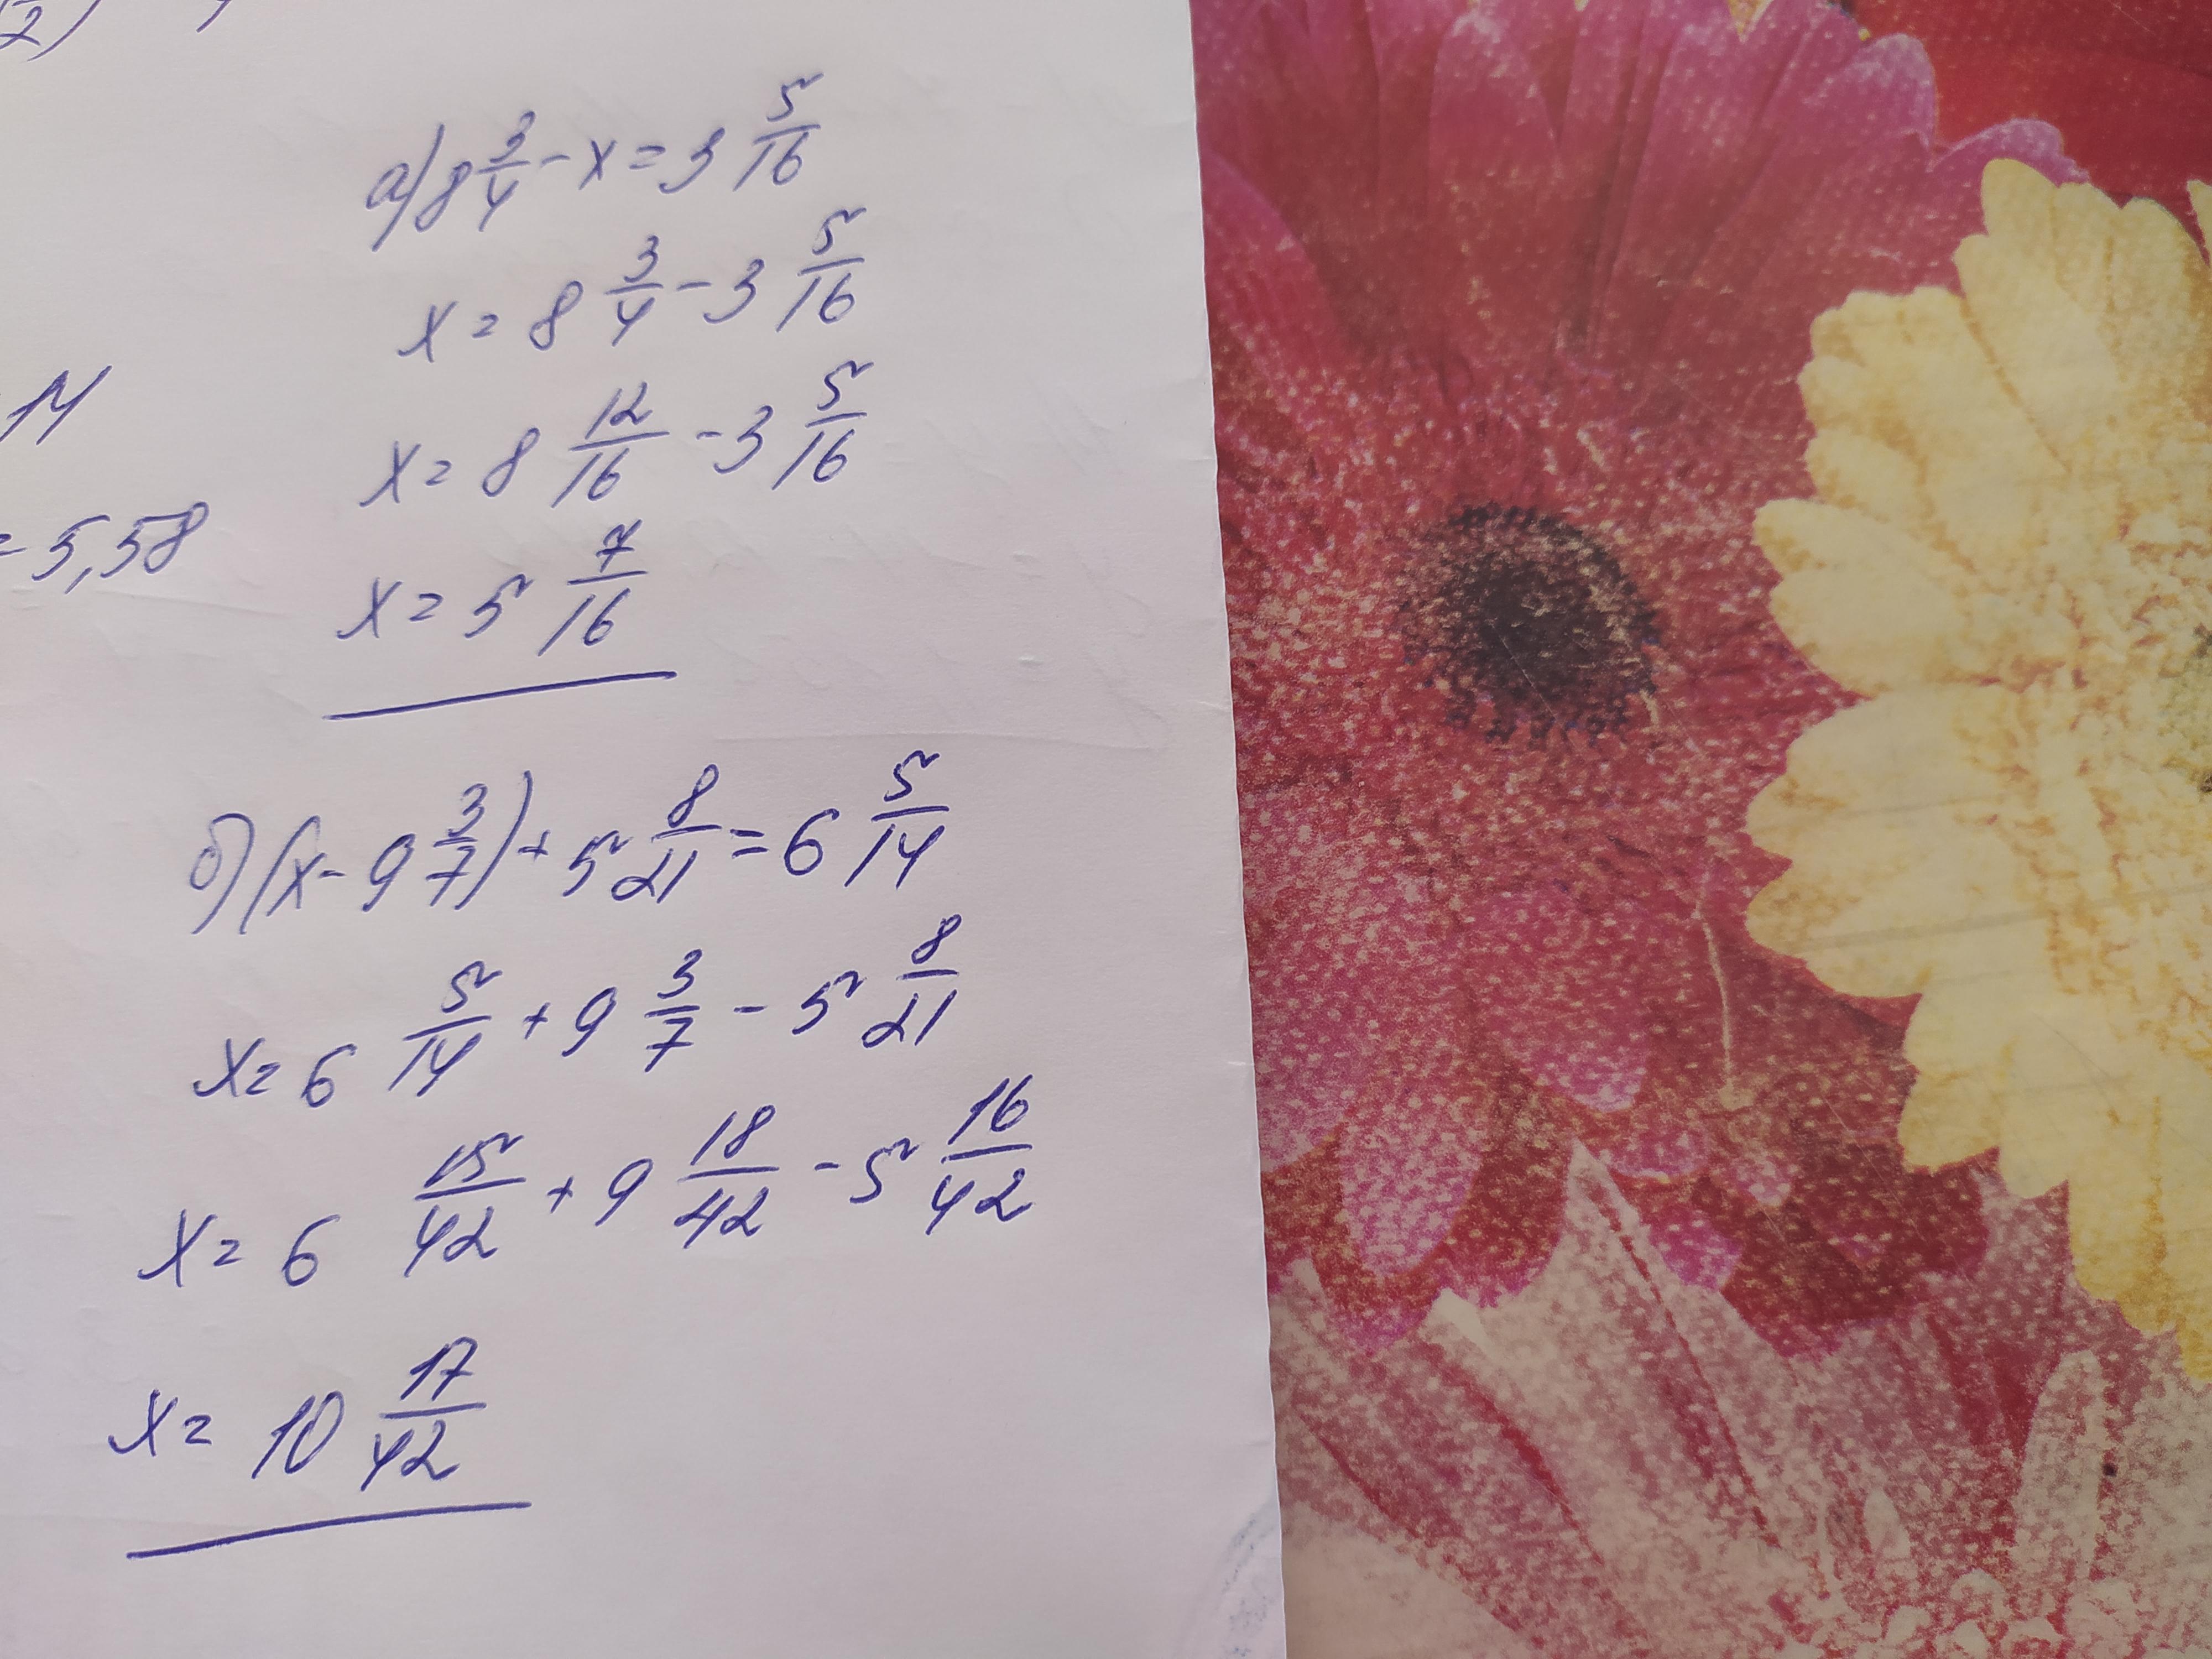 2)
а) 8 3/4 - x = 3 5/16
x = 8 3/4 - 3 5/16
x = 8 12/16 - 3 5/16
x = 5 7/16
14
= 5,58
б) (x - 9 3/7) + 5 8/21 = 6 5/14
x = 6 5/14 + 9 3/7 - 5 8/21
x = 6 15/42 + 9 18/42 - 5 16/42
x = 10 17/42